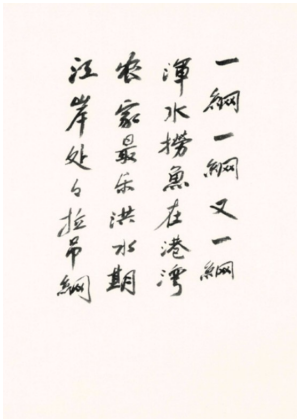 一網一網又一網
渾水撈魚在港湾
农家最乐洪水期
江岸处々拉吊網